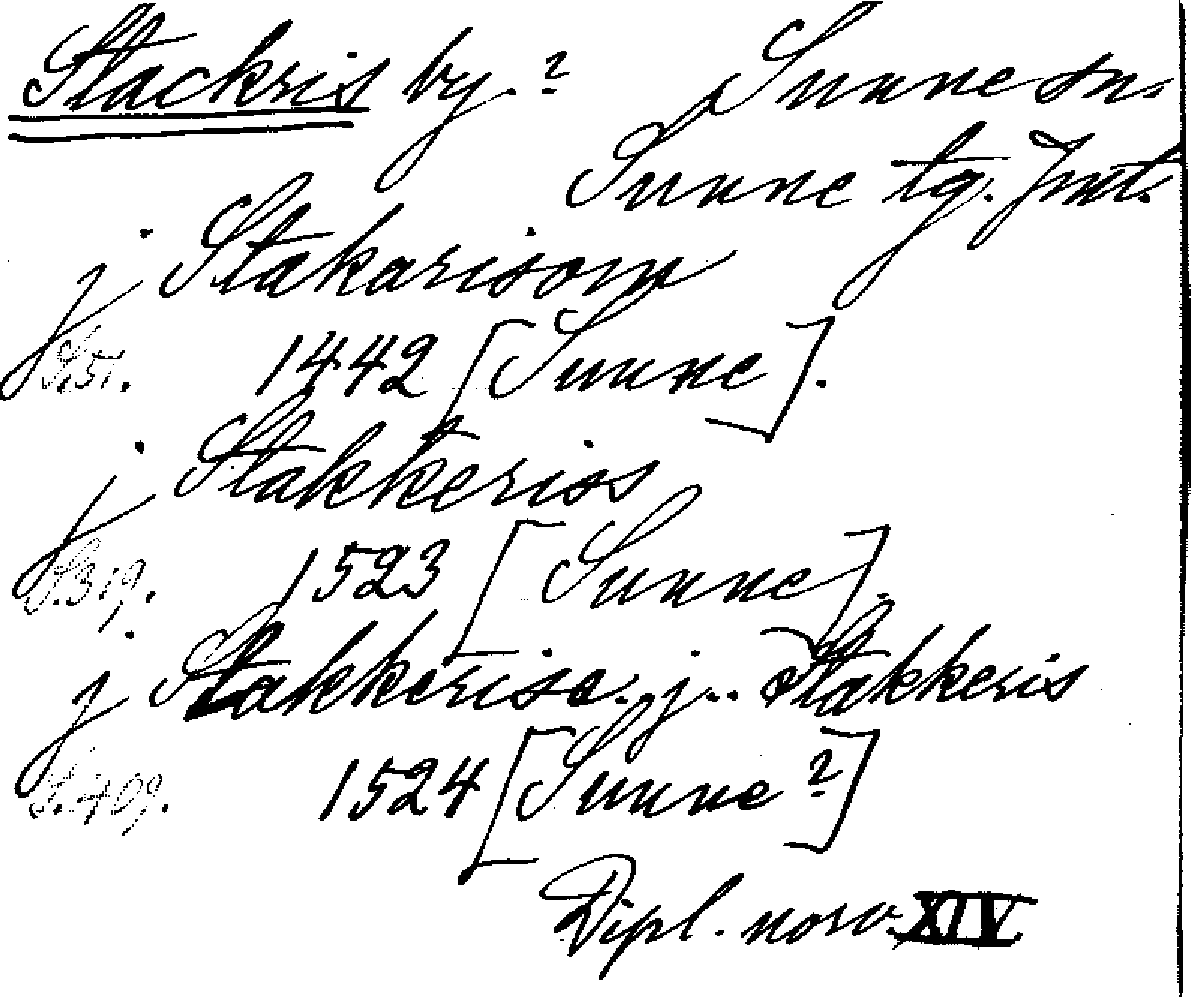 Stackris by.? Sunne sn.
Sunne tg. Jmt.
j Stakarisom
S.51. 1442 [Sunne].
j Stakkeriss
S.319. 1523 [Sunne].
j Stakkerise. j.. Stakkeris
S.409. 1524 [Sunne?]
Dipl. norv. XIV.